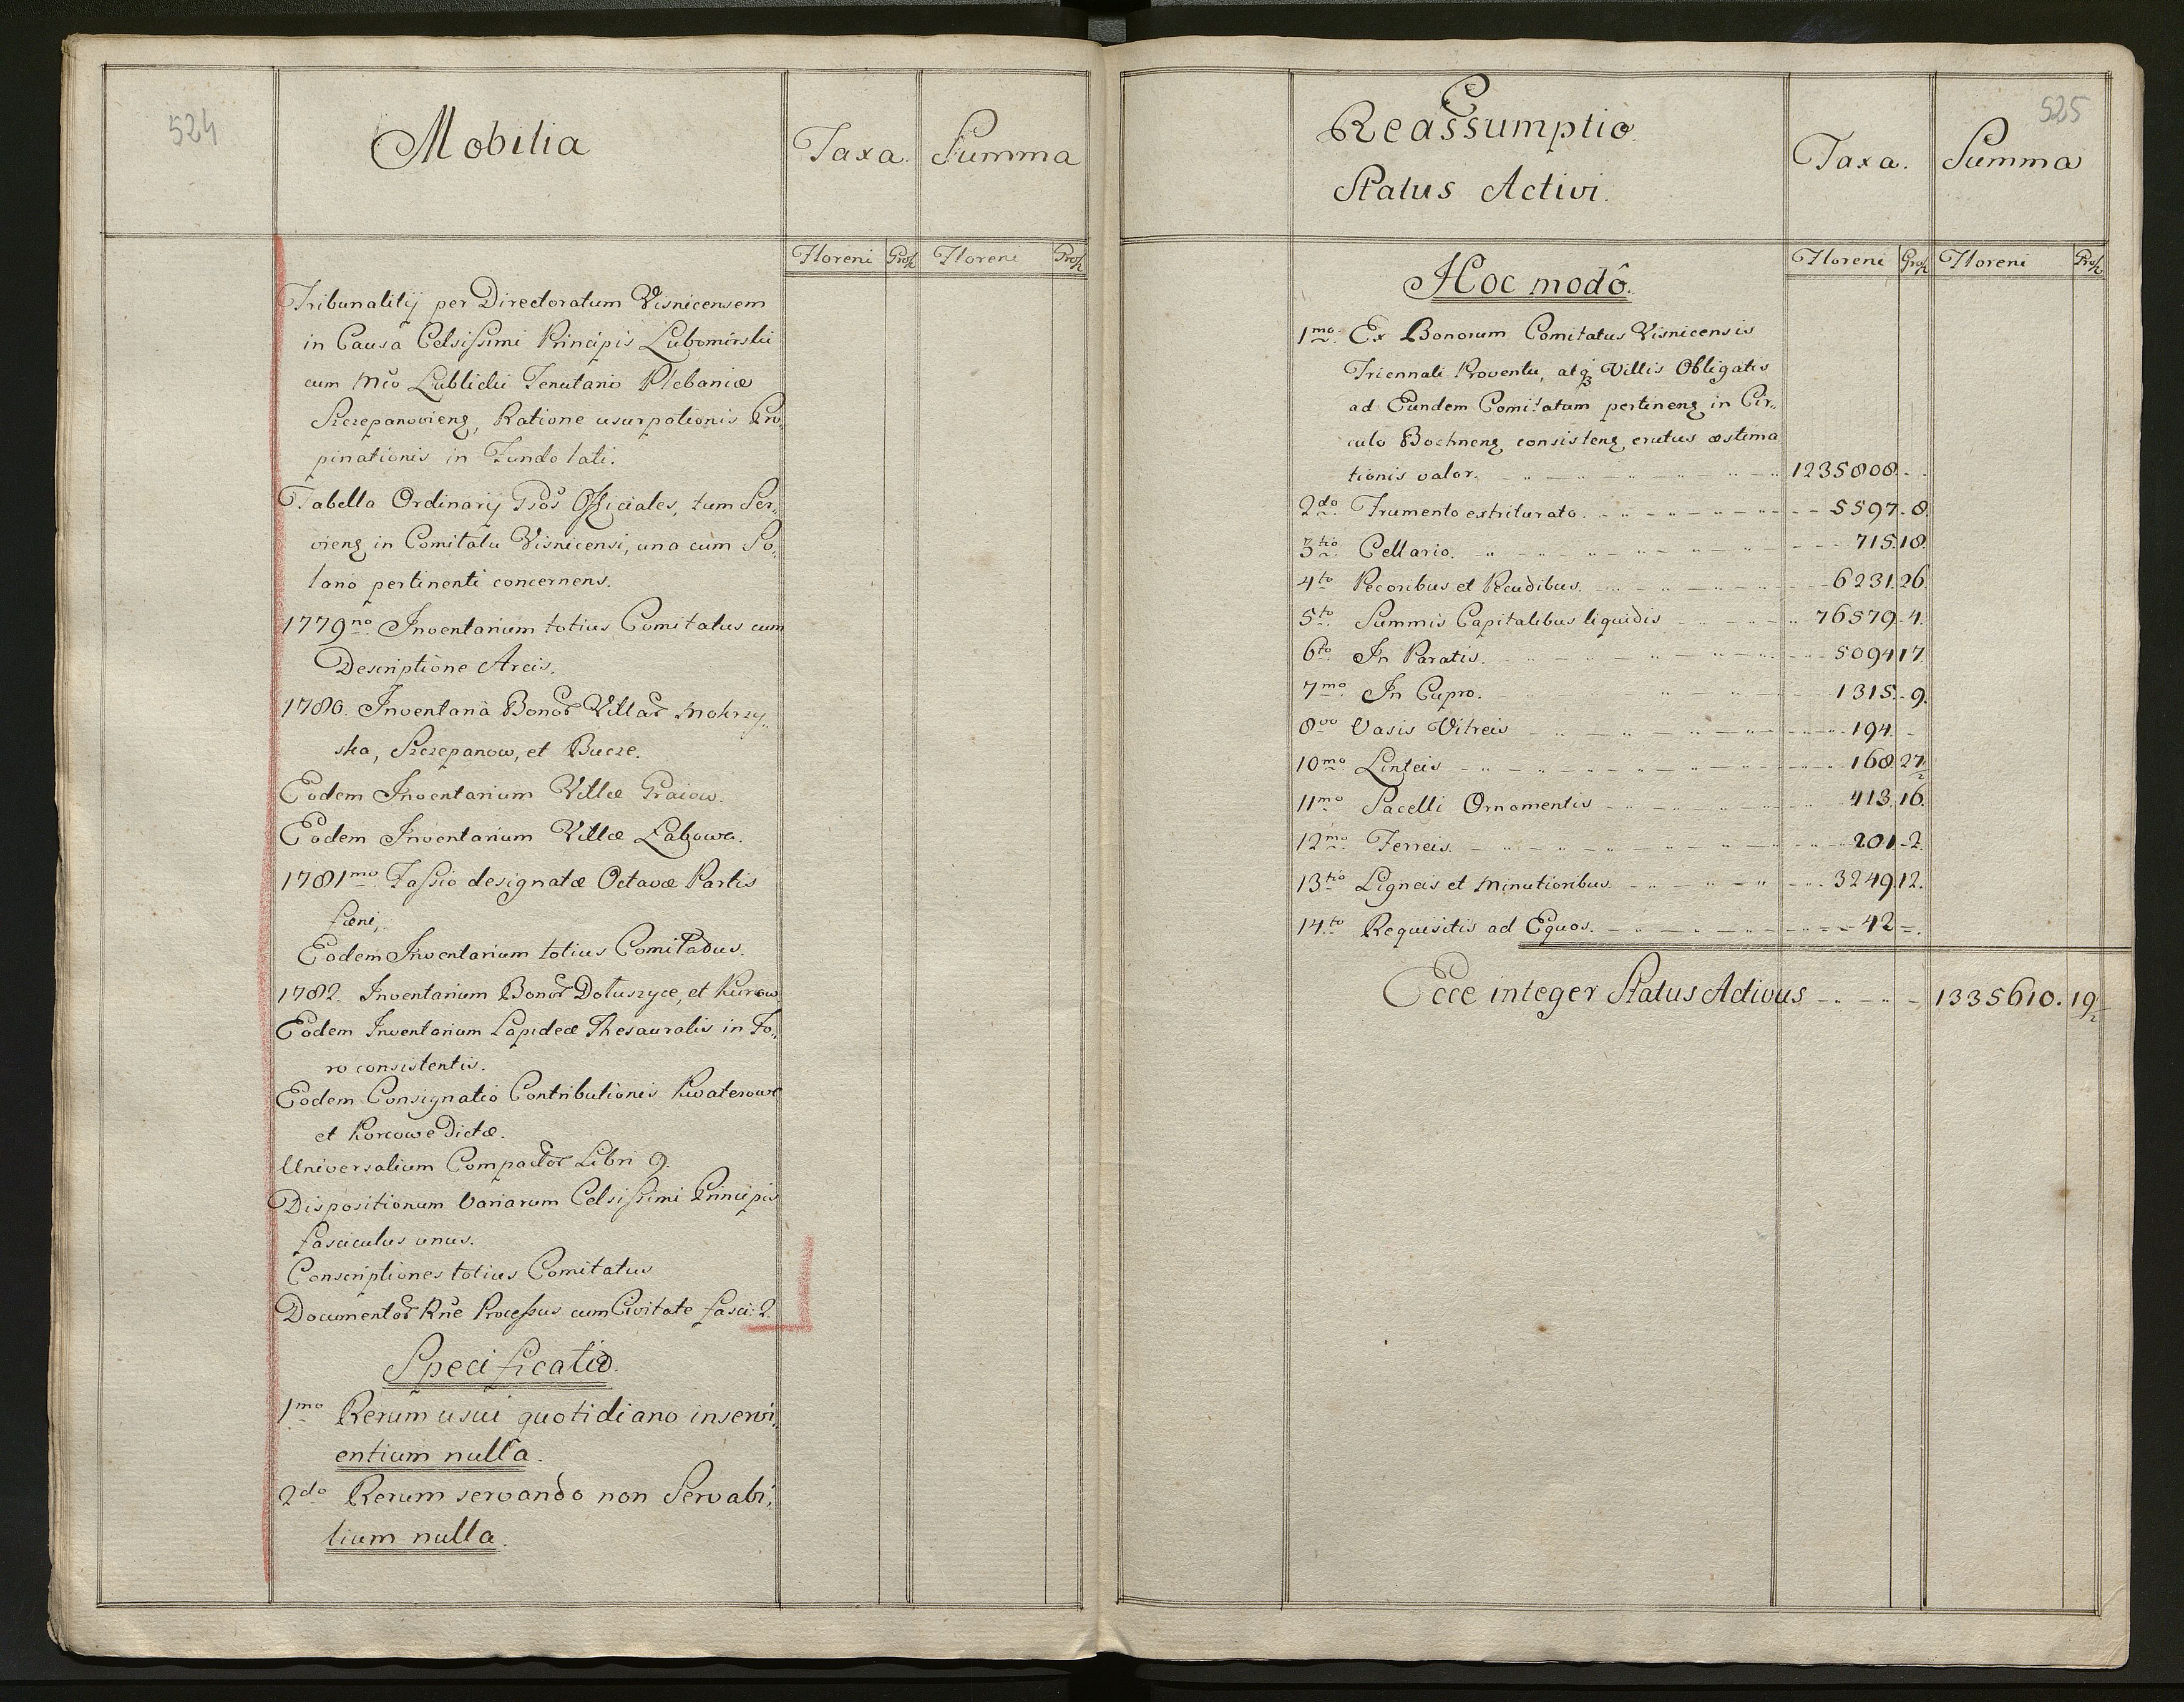 524
Mobilia
Taxa.
Summa
Floreni
Floreni
Tribunalitij per Directoratum Visnicensem
in Causa Celsissimi Principis Lubomirski
cum Mco Lublicki Tenutario Plebaniæ
Szczepanovieng, Ratione usurpationis Pro„
pinationis in Fundo lati.
Tabella Ordinarij Officiales, tum Ser„
vieng in Comitatu Visnicensi, una cum So„
lario pertinenti concernens.
1779no. Inventarium totius Comitatus cum
Descriptione Arcis.
1780. Inventaria Bonor Villar Mokrzy„
ska, Szczepanow, et Bucze.
Eodem Inventarium Villæ Graiow.
Eodem Inventarium Villæ Łabowa.
1781mo. Fassio designatæ Octavæ Partis
fæni,
Eodem Inventarium totius Comitatus.
1782. Inventarium Bonor Doluszyce, et Kurow
Eodem Inventarium Lapideæ Thesauralis in Fo„
ro consistentis.
Eodem Consignatio Contributionis Kwaterowe
et Korcowe Dictæ.
Universalium Compactor Libri 9.
Dispositionum Variarum Celsissimi Principis
fasciculus unus.
Conscriptiones totius Comitatus
Documentor Rne Processus cum Civitate fasci: 2
Specificatio.
1mo Rerum usui quotidiano inservi„
entium nulla.
2do Rerum servando non Servabi„
lium nulla.
525
Reassumptio
Status Activi.
Taxa.
Summa
Floreni
Floreni
Hoc modô.
1mo. Ex Bonorum Comitatus Visnicensis
Triennali Proventu, atq Villis Obligatis
ad Eundem Comitatum pertineng in Cir„
culo Bochneng consisteng erutus æstima
tionis valor. 1235808. -
2do. Frumento extriturato. 5597. 8.
3tio. Cellario. 715. 18.
4to Pecoribus et Pecudibus. 6231. 26.
5to Summis Capitalibus liquidis 76579. 4.
6to In Paratis. 5094 17.
7mo. In Cupro. 1315. 9.
8vo Vasis Vitreis 194. -
10mo. Linteis 168. 27/2
11mo Sacelli Ornamentis 413. 16.
12mo. Ferreis. 201. 2.
13tio Ligneis et Minutioribus. 3249. 12.
14to Requisitis ad Equos. 42 =.
Ecce integer Status Activus 1335610. 19/2